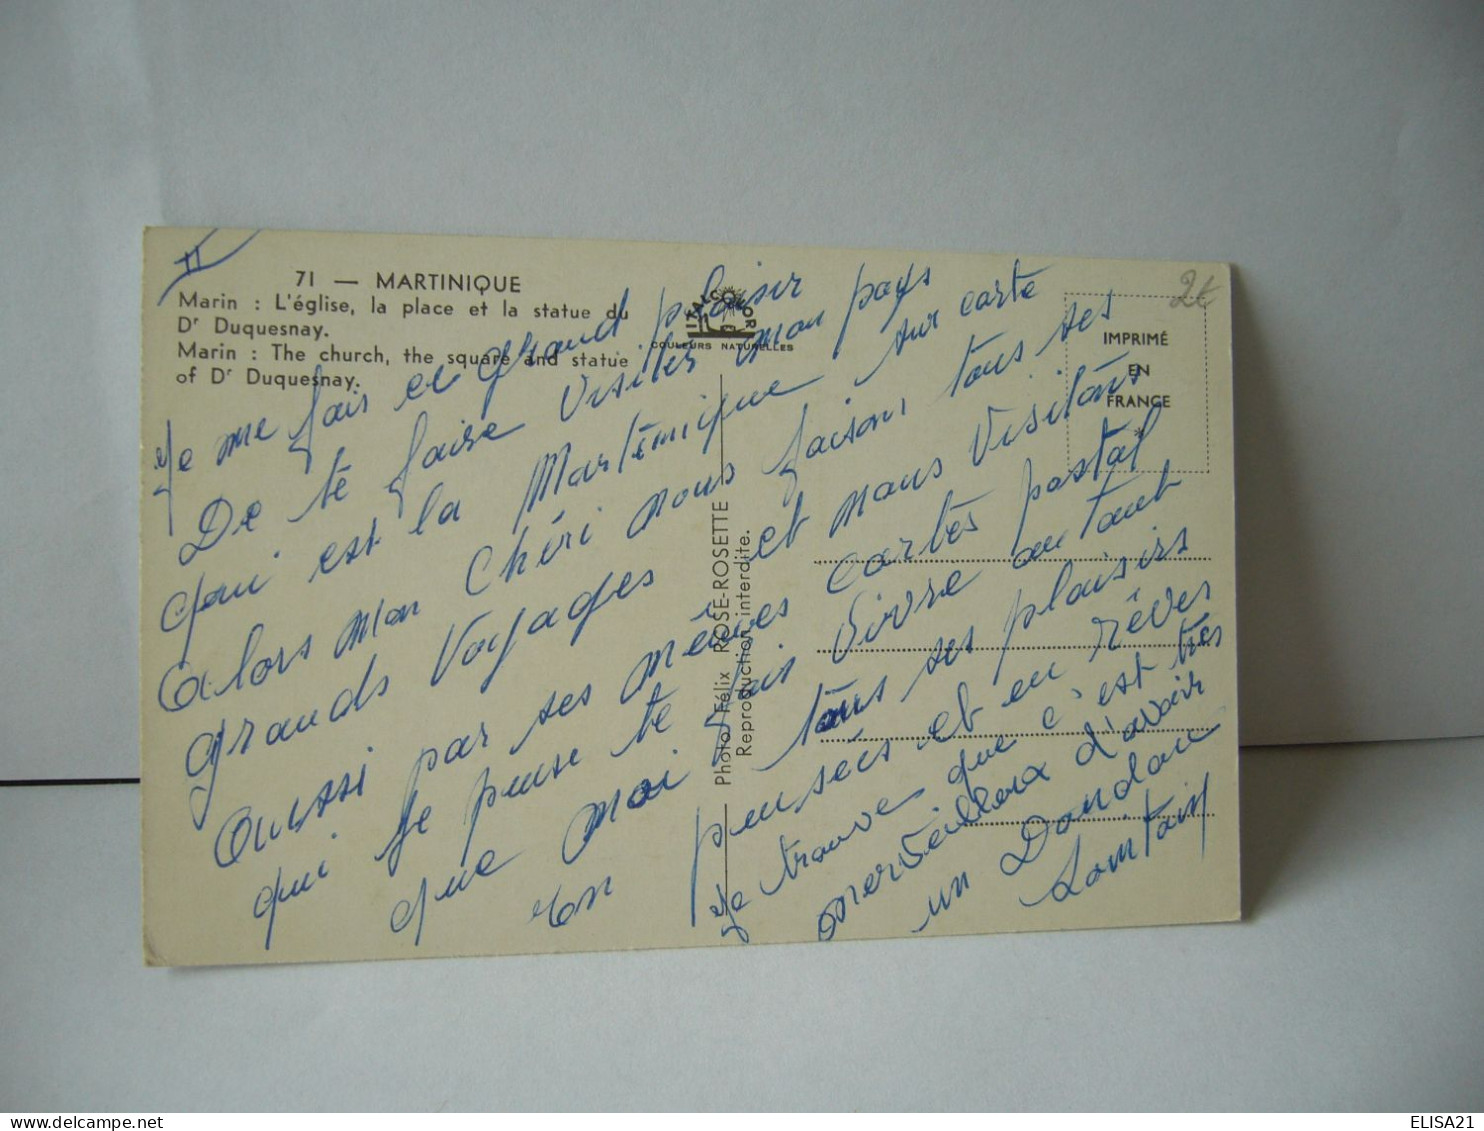 II
71 — MARTINIQUE
Marin : L'église, la place et la statue du
Dr Duquesnay.
Marin : The church, the square and statue
of Dr Duquesnay.
ITALCOLOR
COULEURS NATURELLES
2€
IMPRIMÉ
EN
FRANCE
*
Photo Félix ROSE-ROSETTE
Reproduction interdite.
Je me fais ce grand plaisir
De te faire visiter mon pays
qui est la Martinique sur carte
alors mon Chéri nous faisons tous ses
grands voyages et nous visitons
aussi par ses mêmes cartes postal
qui je pense te fais vivre autant
que moi tous ses plaisirs
en pensées et en rêves
je trouve que c'est très
merveilleux d'avoir
un Doudou
Lointain
ELISA21